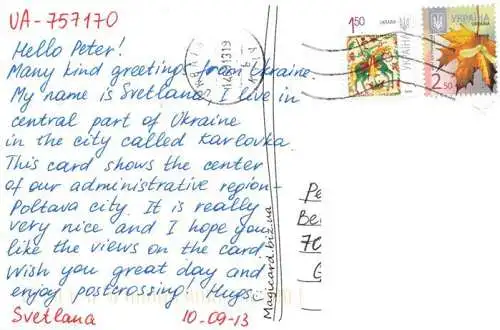 UA-757170
Hello Peter!
Many kind greetings from Ukraine.
My name is Svetlana, I live in
central part of Ukraine
in the city called Karlovka.
This card shows the center
of our administrative region-
Poltava city. It is really
very nice and I hope you
like the views on the card.
Wish you great day and
enjoy postcrossing! Hugs.
Svetlana 10-09-13
Magicard.biz.ua
1.50
УКРАЇНА
УКРАЇНА
2.50
Pe
Be
70
G